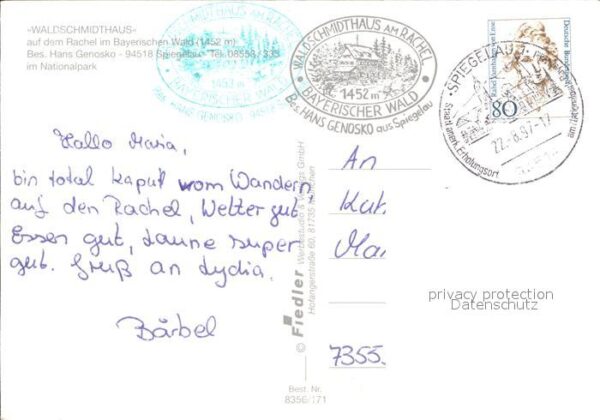 »WALDSCHMIDTHAUS«
auf dem Rachel im Bayerischen Wald (1452 m)
Bes. Hans Genosko - 94518 Spiegelau - Tel. 08553/335
im Nationalpark
WALDSCHMIDTHAUS AM RACHEL
1452 m
BAYERISCHER WALD
Bes. HANS GENOSKO
WALDSCHMIDTHAUS AM RACHEL
1452 m
BAYERISCHER WALD
Bes. HANS GENOSKO aus Spiegelau
Deutsche Bundespost
80
SPIEGELAU
22.-8.97-17
Staatl anerk. Erholungsort
Hallo Maria,
bin total kaputt vom Wandern
auf den Rachel, Wetter gut
Essen gut, Laune super
gut. Gruß an Lydia.
Bärbel
© Fiedler Werbestudio & Verlags GmbH
Hofangerstraße 60, 81735 München
An
Kat.
Ma
7355
privacy protection
Datenschutz
Best. Nr.
8356/171